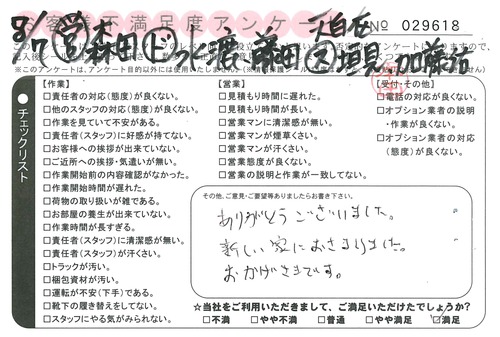 お客様不満足度アンケート
№ 029618
8/7
天白区
【作業】
□責任者の対応(態度)が良くない。
□他のスタッフの対応(態度)が良くない。
□作業を見ていて不安がある。
□責任者(スタッフ)に好感が持てない。
□お客様への挨拶が出来ていない。
□ご近所への挨拶・気遣いが無い。
□作業開始前の内容確認がなかった。
□作業開始時間が遅れた。
□荷物の取り扱いが雑である。
□お部屋の養生が出来ていない。
□作業時間が長すぎる。
□責任者(スタッフ)に清潔感が無い。
□責任者(スタッフ)が汗くさい。
□トラックが汚い。
□梱包資材が汚い。
□運転が不安(下手)である。
□靴下の履き替えをしてない。
□スタッフにやる気がみられない。
チェックリスト
【営業】
□見積もり時間に遅れた。
□見積もり時間が長い。
□営業マンに清潔感が無い。
□営業マンが煙草くさい。
□営業マンが汗くさい。
□営業態度が良くない。
□営業の説明と作業が一致してない。
【受付・その他】
□電話の対応が良くない。
□オプション業者の説明
・作業が良くない。
□オプション業者の対応
(態度)が良くない。
その他、ご意見・ご要望等ありましたらお書き下さい。
ありがとうございました。
新しい家におさまりました。
おかげさまです。
☆当社をご利用いただきまして、ご満足いただけたでしょうか?
□不満 □やや不満 □普通 □やや満足 □満足